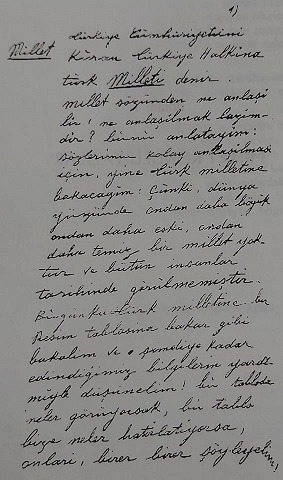 1)
Türkiye Cümhuriyetini
Millet kuran Türkiye Halkına
türk Milleti denir.
millet sözünden ne anlaşı
lır; ne anlaşılmak lazım-
dır? bunu anlatayım:
sözlerimin kolay anlaşılması
için, yine türk milletine
bakacağım: Çünki, dünya
yüzünde ondan daha büyük
ondan daha eski, ondan
daha temiz bir millet yok-
tur ve bütün insanlar
tarihinde görülmemiştir.
Bugünkü türk milletine bir
resim tablosuna bakar gibi
bakalım ve şimdiye kadar
edindiğimiz bilgilerin yardı
miyle düşünelim! bu tabloda
neler görüyorsak, bu tablo
bize neler hatırlatıyorsa,
onları, birer birer söyleyelim!